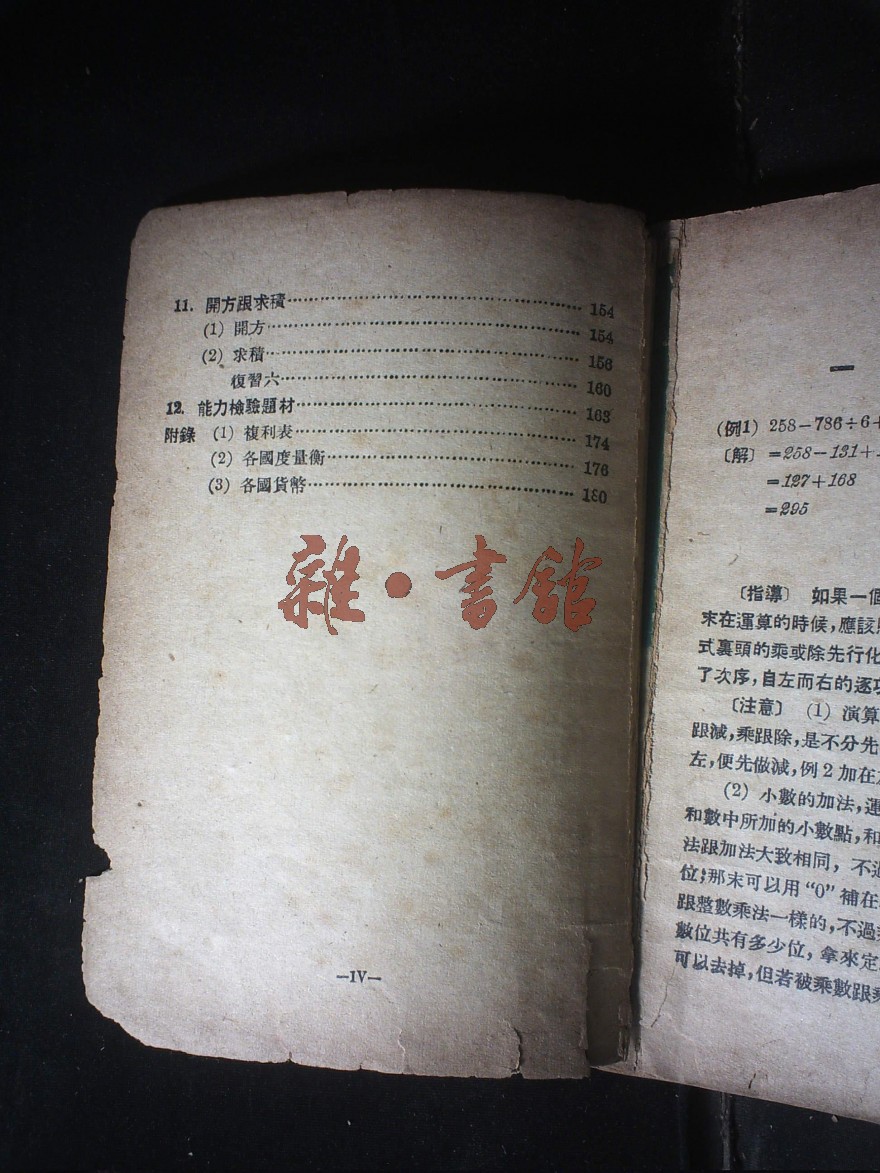 11. 開方跟求積 154
(1) 開方 154
(2) 求積 156
復習六 160
12. 能力檢驗題材 163
附錄 (1) 複利表 174
(2) 各國度量衡 176
(3) 各國貨幣 180
雜·書館
—IV—
一
(例1) 258−786÷6+
〔解〕 =258−131+
=127+168
=295
〔指導〕 如果一個
末在運算的時候，應該
式裏頭的乘或除先行化
了次序，自左而右的逐
〔注意〕 (1) 演算
跟減，乘跟除，是不分先
左，便先做減，例2加在
(2) 小數的加法，運
和數中所加的小數點，和
法跟加法大致相同，不
位；那末可以用“0”補在
跟整數乘法一樣的，不過
數位共有多少位，拿來定
可以去掉，但若被乘數跟